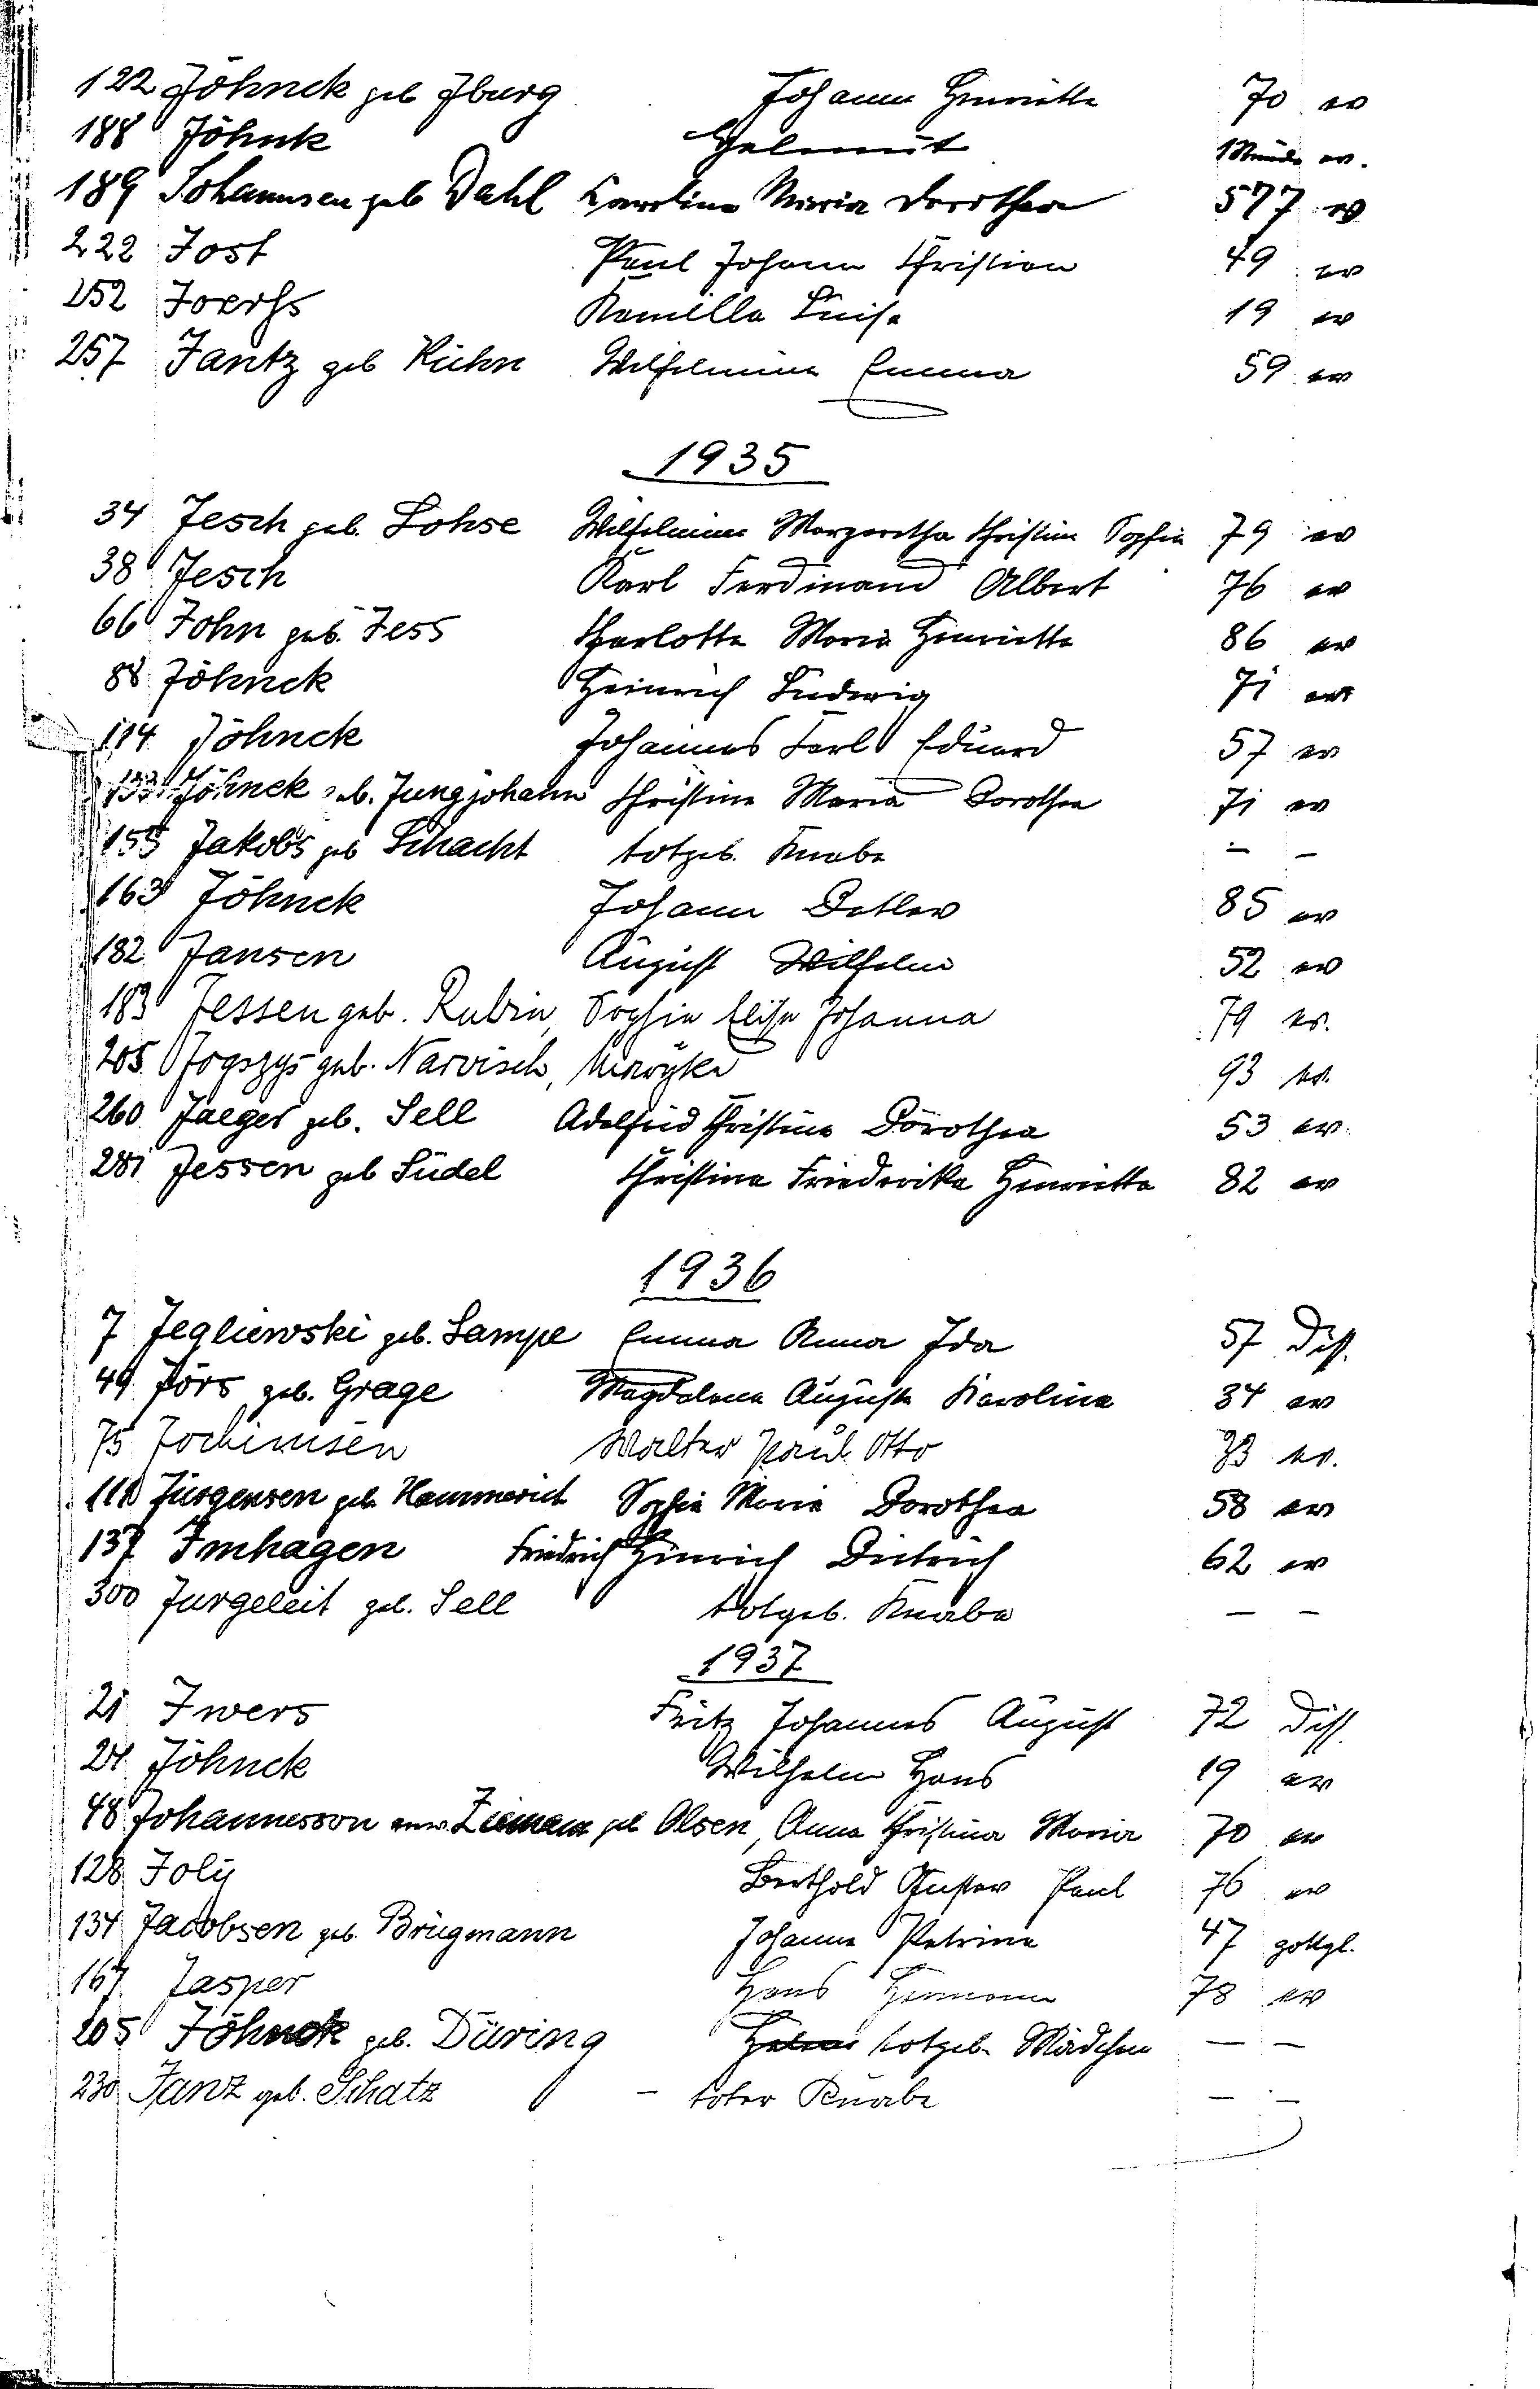 122 Jöhnck geb Iburg Johanna Henriette 70 ev
188 Jöhnk Helmut 1 Stunde ev.
189 Johannsen geb Dahl Karoline Maria Dorothea 77 ev
222 Jost Paul Johann Christian 49 ev
252 Joerss Kamilla Luise 19 ev
257 Jantz geb Kühn Wilhelmine Emma 59 ev
1935
34 Jesch geb. Lohse Wilhelmine Margaretha Christine Sophie 79 ev
38 Jesch Karl Ferdinand Albert 76 ev
66 John geb. Jess Charlotte Maria Henriette 86 ev
88 Jöhnck Heinrich Ludwig 71 ev
114 Jöhnck Johannes Karl Eduard 57 ev
133 Jöhnck geb. Jungjohann Christine Maria Dorothea 71 ev
155 Jakobs geb Schacht totgeb. Knabe – –
163 Jöhnck Johann Detlev 85 ev
182 Jansen August Wilhelm 52 ev
183 Jessen geb. Rubin, Sophie Elise Johanna 79 ev.
205 Jogszys geb. Narvisch, Maryke 93 ev.
260 Jaeger geb. Sell Adelheid Christine Dorothea 53 ev.
281 Jessen geb Südel Christine Friederike Henriette 82 ev
1936
7 Jegliewski geb. Lampe Emma Anna Ida 57 Diss.
49 Jörs geb. Grage Magdalena Auguste Karoline 84 ev
75 Jochimsen Walter Paul Otto 33 ev.
111 Jürgensen geb Hammerich Sophie Marie Dorothea 58 ev
137 Imhagen Friedrich Hinrich Dietrich 62 ev
300 Jurgeleit geb. Sell totgeb. Knabe – –
1937
21 Iwers Fritz Johannes August 72 Diss.
24 Jöhnck Wilhelm Hans 19 ev
48 Johannesson verw. Ziemann geb Olsen, Anna Christina Maria 70 ev
128 Joly Berthold Gustav Paul 76 ev
134 Jacobsen geb. Brügmann Johanna Petrine 47 gottgl.
167 Jasper Hans Hermann 78 ev
205 Jöhnck geb. Düring totgeb. Mädchen – –
230 Janz geb. Schatz – toter Knabe – –